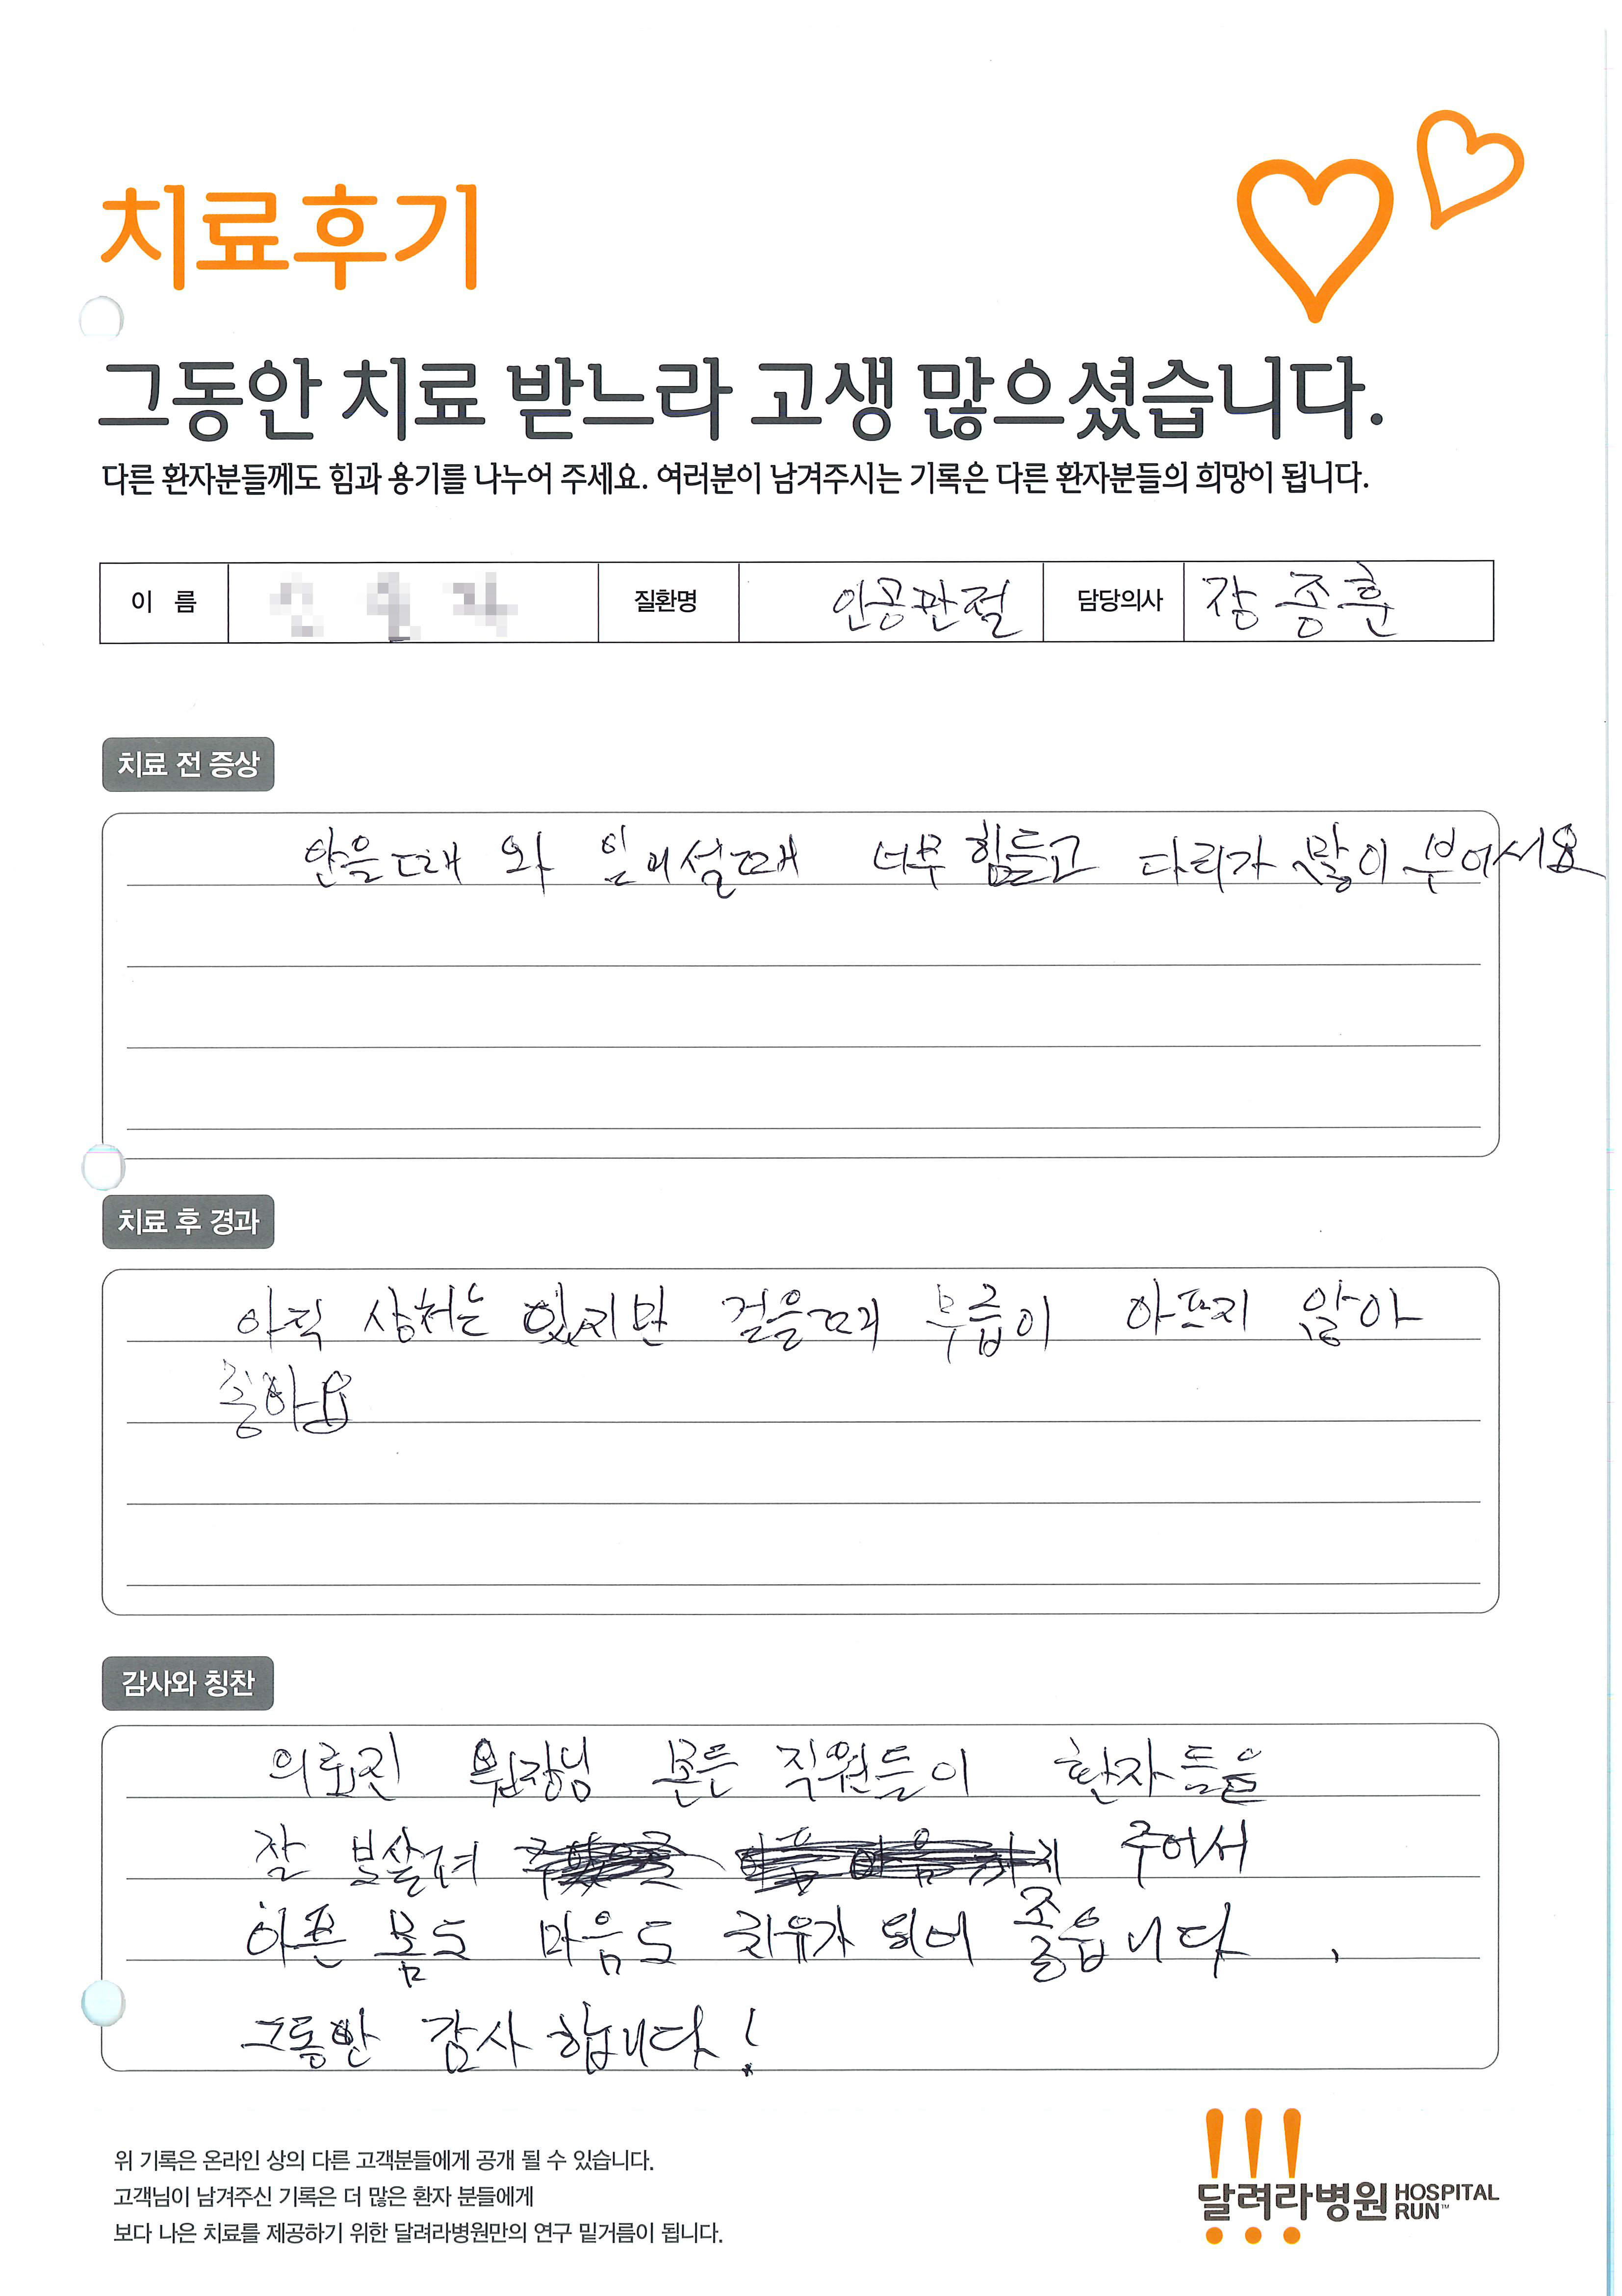 치료후기
그동안 치료 받느라 고생 많으셨습니다.
다른 환자분들께도 힘과 용기를 나누어 주세요. 여러분이 남겨주시는 기록은 다른 환자분들의 희망이 됩니다.
이 름 질환명 인공관절 담당의사 장종훈
치료 전 증상
안을때 와 일어설때 너무 힘들고 다리가 많이 부어서요
치료 후 경과
아직 상처는 있지만 걸을때 무릎이 아프지 않아
좋아요
감사와 칭찬
의료진 원장님 모든 직원들이 환자들을
잘 보살펴 주어서
아픈 몸도 마음도 치유가 되어 좋읍니다.
그동안 감사합니다!
위 기록은 온라인 상의 다른 고객분들에게 공개 될 수 있습니다.
고객님이 남겨주신 기록은 더 많은 환자 분들에게
보다 나은 치료를 제공하기 위한 달려라병원만의 연구 밑거름이 됩니다.
달려라병원 HOSPITAL RUN™